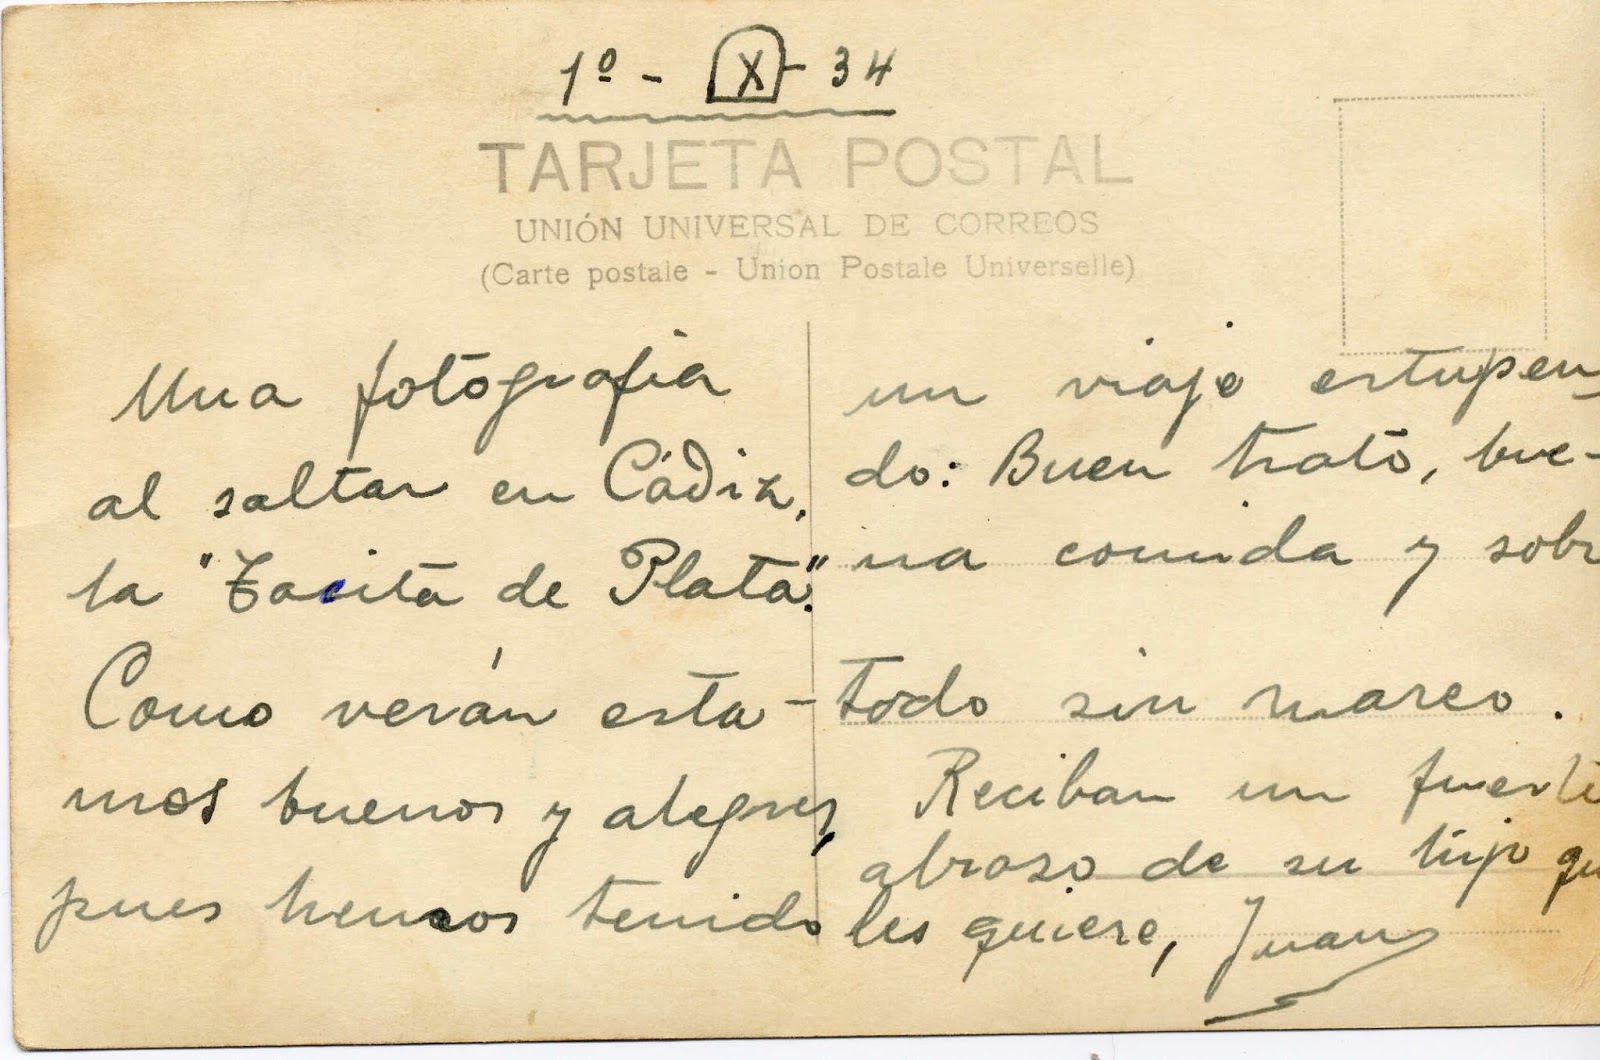 1º - X - 34
TARJETA POSTAL
UNIÓN UNIVERSAL DE CORREOS
(Carte postale - Union Postale Universelle)
Una fotografía
al saltar en Cádiz,
la "Tacita de Plata".
Como verán esta-
mos buenos y alegres,
pues hemos tenido
un viaje estupen-
do: Buen trato, bue-
na comida y sobr
todo sin mareo.
Reciban un fuerte
abrazo de su hijo qu
les quiere, Juan